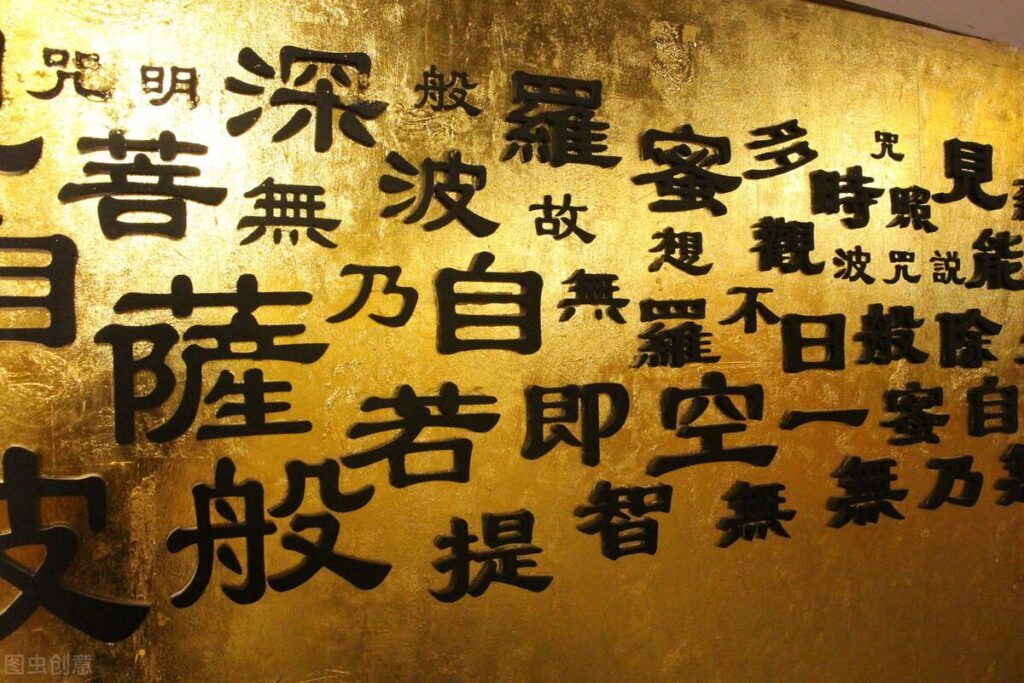 咒明深般羅蜜多咒見
菩無波故想觀時照
波咒説能
自薩乃自無羅不日般除
若即空一蜜自
般提智無無乃
图虫创意